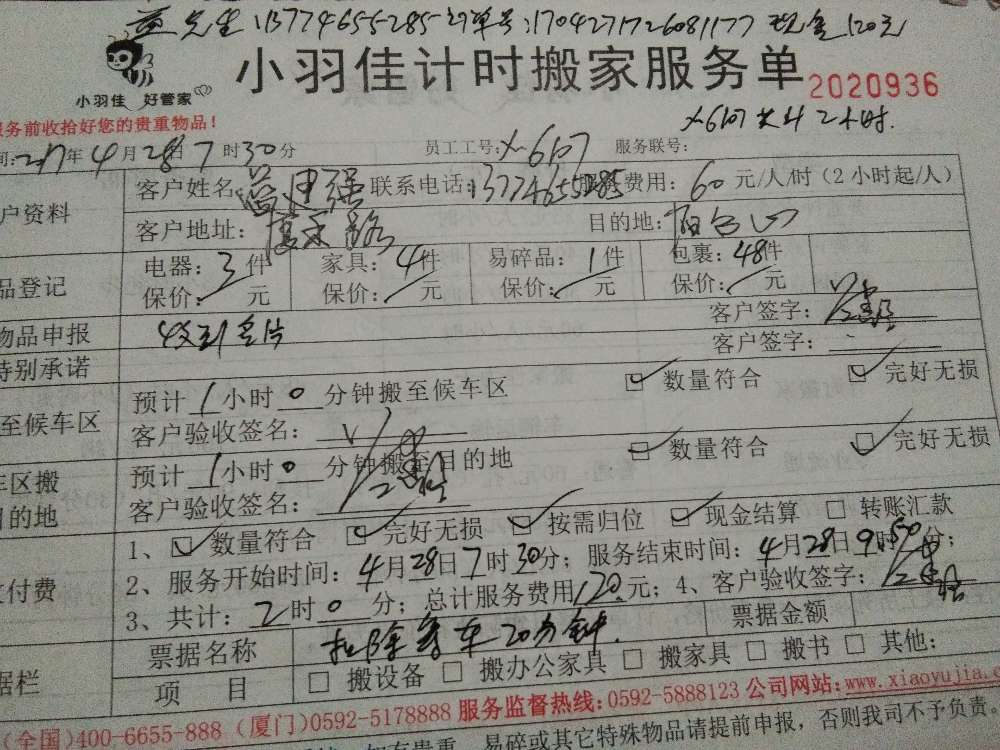 先生 13774655285 订单号:1704271726081177 现金120元
小羽佳计时搬家服务单 2020936
小羽佳 好管家
服务前收拾好您的贵重物品!
X-6107 共计2小时.
间:2017年4月28日7时30分 员工工号:X-6107 服务联号:
户资料 客户姓名: 联系电话:13774655285 服务费用:60元/人/时(2小时起/人)
客户地址: 目的地:
品登记 电器:3件 家具:4件 易碎品:1件 包裹:48件
保价: 元 保价: 元 保价: 元 保价: 元
物品申报 收到名片 客户签字:
特别承诺 客户签字:
至候车区 预计1小时0分钟搬至候车区 数量符合 完好无损
客户验收签名:
车区搬 预计1小时0分钟搬至目的地 数量符合 完好无损
目的地 客户验收签名:
付费 1、数量符合 完好无损 按需归位 现金结算 转账汇款
2、服务开始时间:4月28日7时30分;服务结束时间:4月28日9时50分;
3、共计:2时0分;总计服务费用120元;4、客户验收签字:
据栏 票据名称 扣除等车20分钟. 票据金额
项 目 搬设备 搬办公家具 搬家具 搬书 其他:
(全国)400-6655-888 (厦门)0592-5178888 服务监督热线:0592-5888123 公司网站:www.xiaoyujia.c
易碎或其它特殊物品请提前申报,否则我司不予负责。